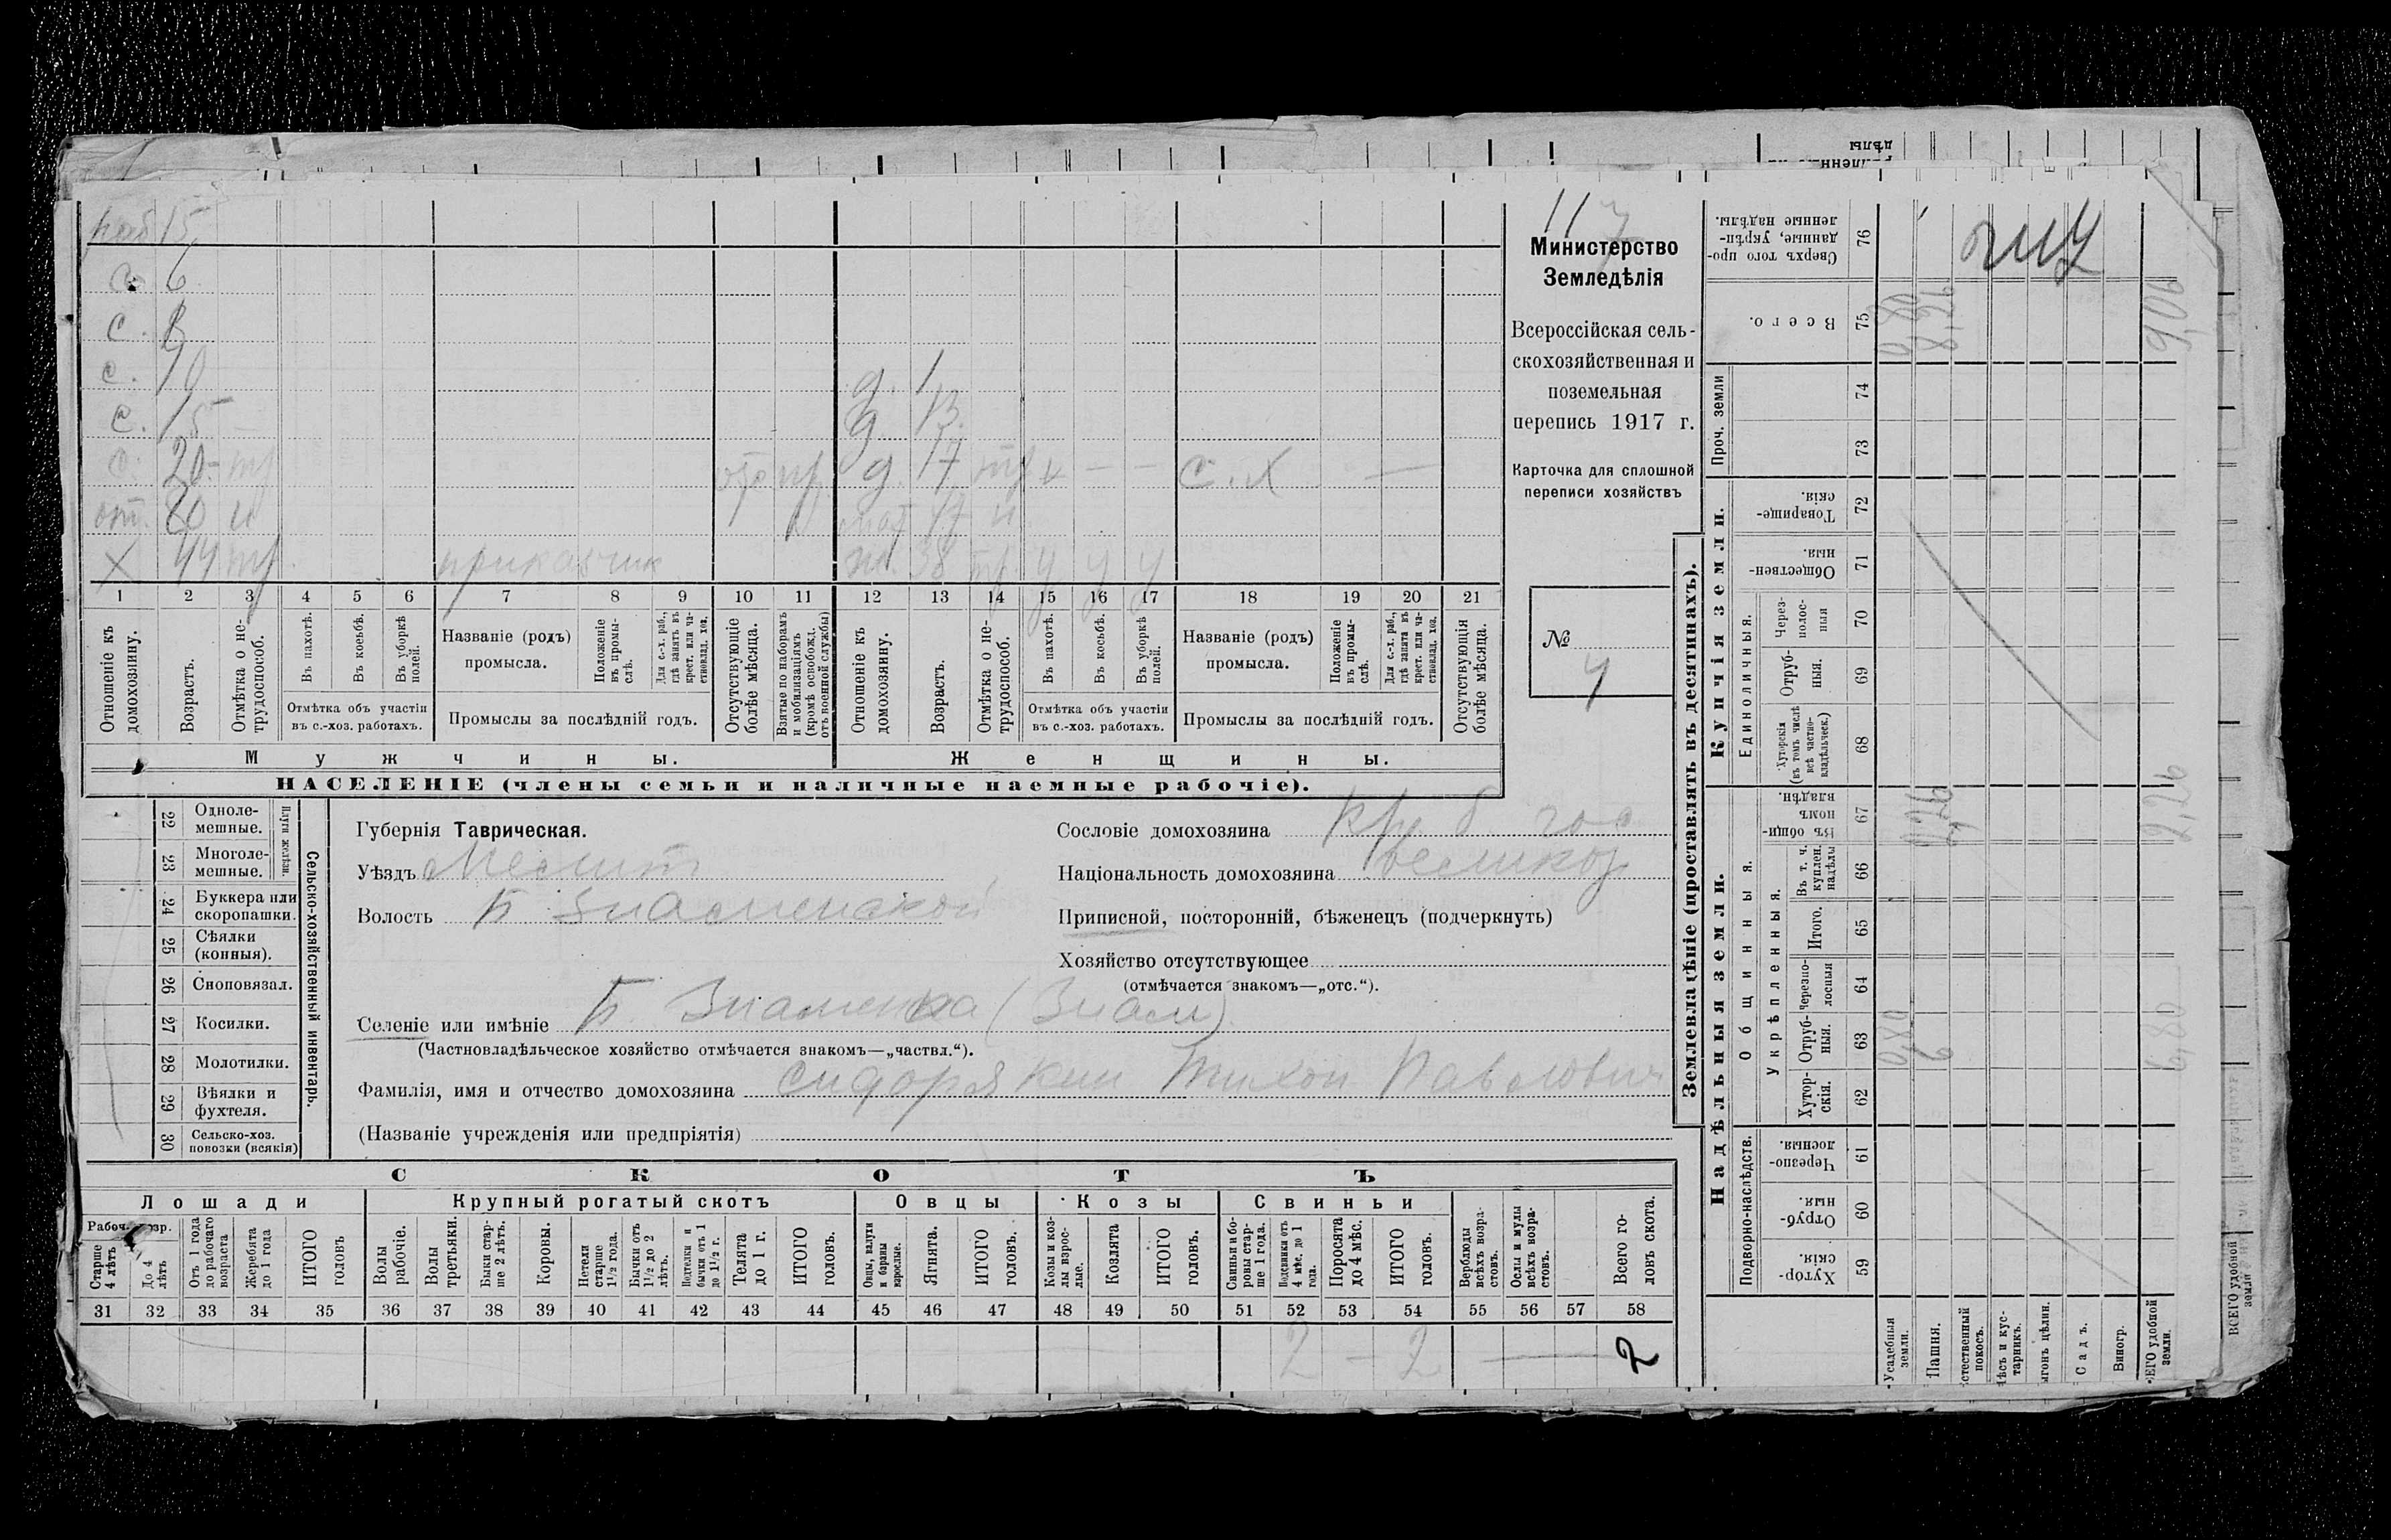 раб 15
с. 6
с. 8
с. 10 д. 1
с. 15 д. 13
с. 20 тр отс пр д. 17 тр с. х —
от. 80 н мат 77 н
Х 44 тр приказчик ж. 38 тр. у у у
1 2 3 4 5 6 7 8 9 10 11 12 13 14 15 16 17 18 19 20 21
Отношеніе къ домохозяину.
Возрастъ.
Отмѣтка о нетрудоспособ.
Въ пахотѣ.
Въ косьбѣ.
Въ уборкѣ полей.
Отмѣтка объ участіи
въ с.-хоз. работахъ.
Названіе (родъ)
промысла.
Положеніе въ промыслѣ.
Для с.-х. раб., гдѣ занятъ въ крест. или частновлад. хоз.
Промыслы за послѣдній годъ.
Отсутствующіе болѣе мѣсяца.
Взятые по наборамъ и мобилизаціямъ (кромѣ освобожд. отъ военной службы)
Отношеніе къ домохозяину.
Возрастъ.
Отмѣтка о нетрудоспособ.
Въ пахотѣ.
Въ косьбѣ.
Въ уборкѣ полей.
Отмѣтка объ участіи
въ с.-хоз. работахъ.
Названіе (родъ)
промысла.
Положеніе въ промыслѣ.
Для с.-х. раб., гдѣ занята въ крест. или частновлад. хоз.
Промыслы за послѣдній годъ.
Отсутствующія болѣе мѣсяца.
Мужчины. Женщины.
НАСЕЛЕНІЕ (члены семьи и наличные наемные рабочіе).
117
Министерство
Земледѣлія
Всероссійская сель-
скохозяйственная и
поземельная
перепись 1917 г.
Карточка для сплошной
переписи хозяйствъ
№
4
22 Одноле-
мешные.
23 Многоле-
мешные.
Плуги желѣзн.
24 Буккера или
скоропашки.
25 Сѣялки
(конныя).
26 Сноповязал.
27 Косилки.
28 Молотилки.
29 Вѣялки и
фухтеля.
30 Сельско-хоз.
повозки (всякія)
Сельско-хозяйственный инвентарь.
Губернія Таврическая.
Уѣздъ Мелит
Волость Б Знаменской
Селеніе или имѣніе Б. Знаменка (Знам)
(Частновладѣльческое хозяйство отмѣчается знакомъ—„частвл.“).
Фамилія, имя и отчество домохозяина Сидорякин Тихон Павлович
(Названіе учрежденія или предпріятія)
Сословіе домохозяина кр. б. гос
Національность домохозяина великор
Приписной, посторонній, бѣженецъ (подчеркнуть)
Хозяйство отсутствующее
(отмѣчается знакомъ—„отс.“).
СКОТЪ
Лошади Крупный рогатый скотъ Овцы Козы Свиньи
Рабоч. возр.
Старше 4 лѣтъ
До 4 лѣтъ
Отъ 1 года до рабочаго возраста
Жеребята до 1 года
ИТОГО головъ
Волы рабочіе.
Волы третьяки.
Быки старше 2 лѣтъ.
Коровы.
Нетели старше 1½ года.
Бычки отъ 1½ до 2 лѣтъ.
Подтелки и бычки отъ 1 до 1½ г.
Телята до 1 г.
ИТОГО головъ.
Овцы, валухи и бараны взрослые.
Ягнята.
ИТОГО головъ.
Козы и козлы взрослые.
Козлята
ИТОГО головъ.
Свиньи и боровы старше 1 года.
Подсвинки отъ 4 мѣс. до 1 года.
Поросята до 4 мѣс.
ИТОГО головъ.
Верблюды всѣхъ возрастовъ.
Ослы и мулы всѣхъ возрастовъ.
Всего головъ скота.
31 32 33 34 35 36 37 38 39 40 41 42 43 44 45 46 47 48 49 50 51 52 53 54 55 56 57 58
2 — 2 — 2
Землевладѣніе (проставлять въ десятинахъ).
Купчія земли.
Надѣльныя земли.
Сверхъ того проданные, укрѣпленные надѣлы. 76
Всего. 75 0,80 8,26 9,06
Проч. земли 74
73
Товарищескія. 72
Общественныя. 71
Единоличныя.
Черезполосныя 70
Отрубныя. 69
Хуторскія (въ томъ числѣ всѣ частновладѣльческ.) 68
Общинныя.
Въ общинномъ владѣн. 67 2,26
Укрѣпленныя.
Въ т. ч. куплен. надѣлы 66
Итого. 65
Черезполосныя 64
Отрубныя. 63 0,80 6 6,80
Хуторскія. 62
Подворно-наслѣдств.
Черезполосныя. 61
Отрубныя. 60
Хуторскія. 59
Усадебныя земли.
Пашня.
Садъ.
Виногр.
ВСЕГО удобной земли